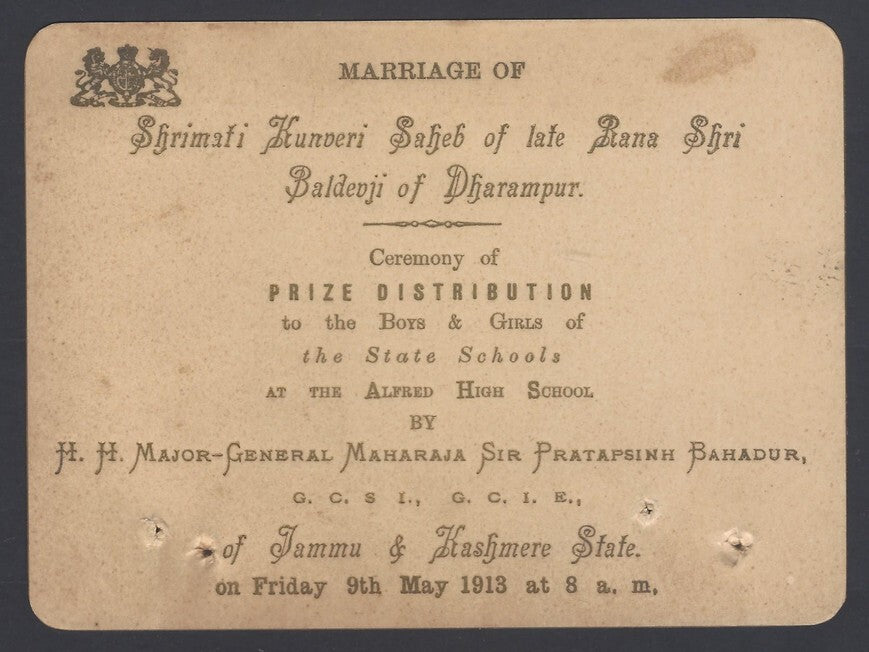 MARRIAGE OF
Shrimati Kunveri Saheb of late Rana Shri
Baldevji of Dharampur.
Ceremony of
PRIZE DISTRIBUTION
to the BOYS & GIRLS of
the State Schools
AT THE ALFRED HIGH SCHOOL
BY
H. H. MAJOR-GENERAL MAHARAJA SIR PRATAPSINH BAHADUR,
G. C. S I., G. C. I. E.,
of Jammu & Kashmere State.
on Friday 9th May 1913 at 8 a. m.